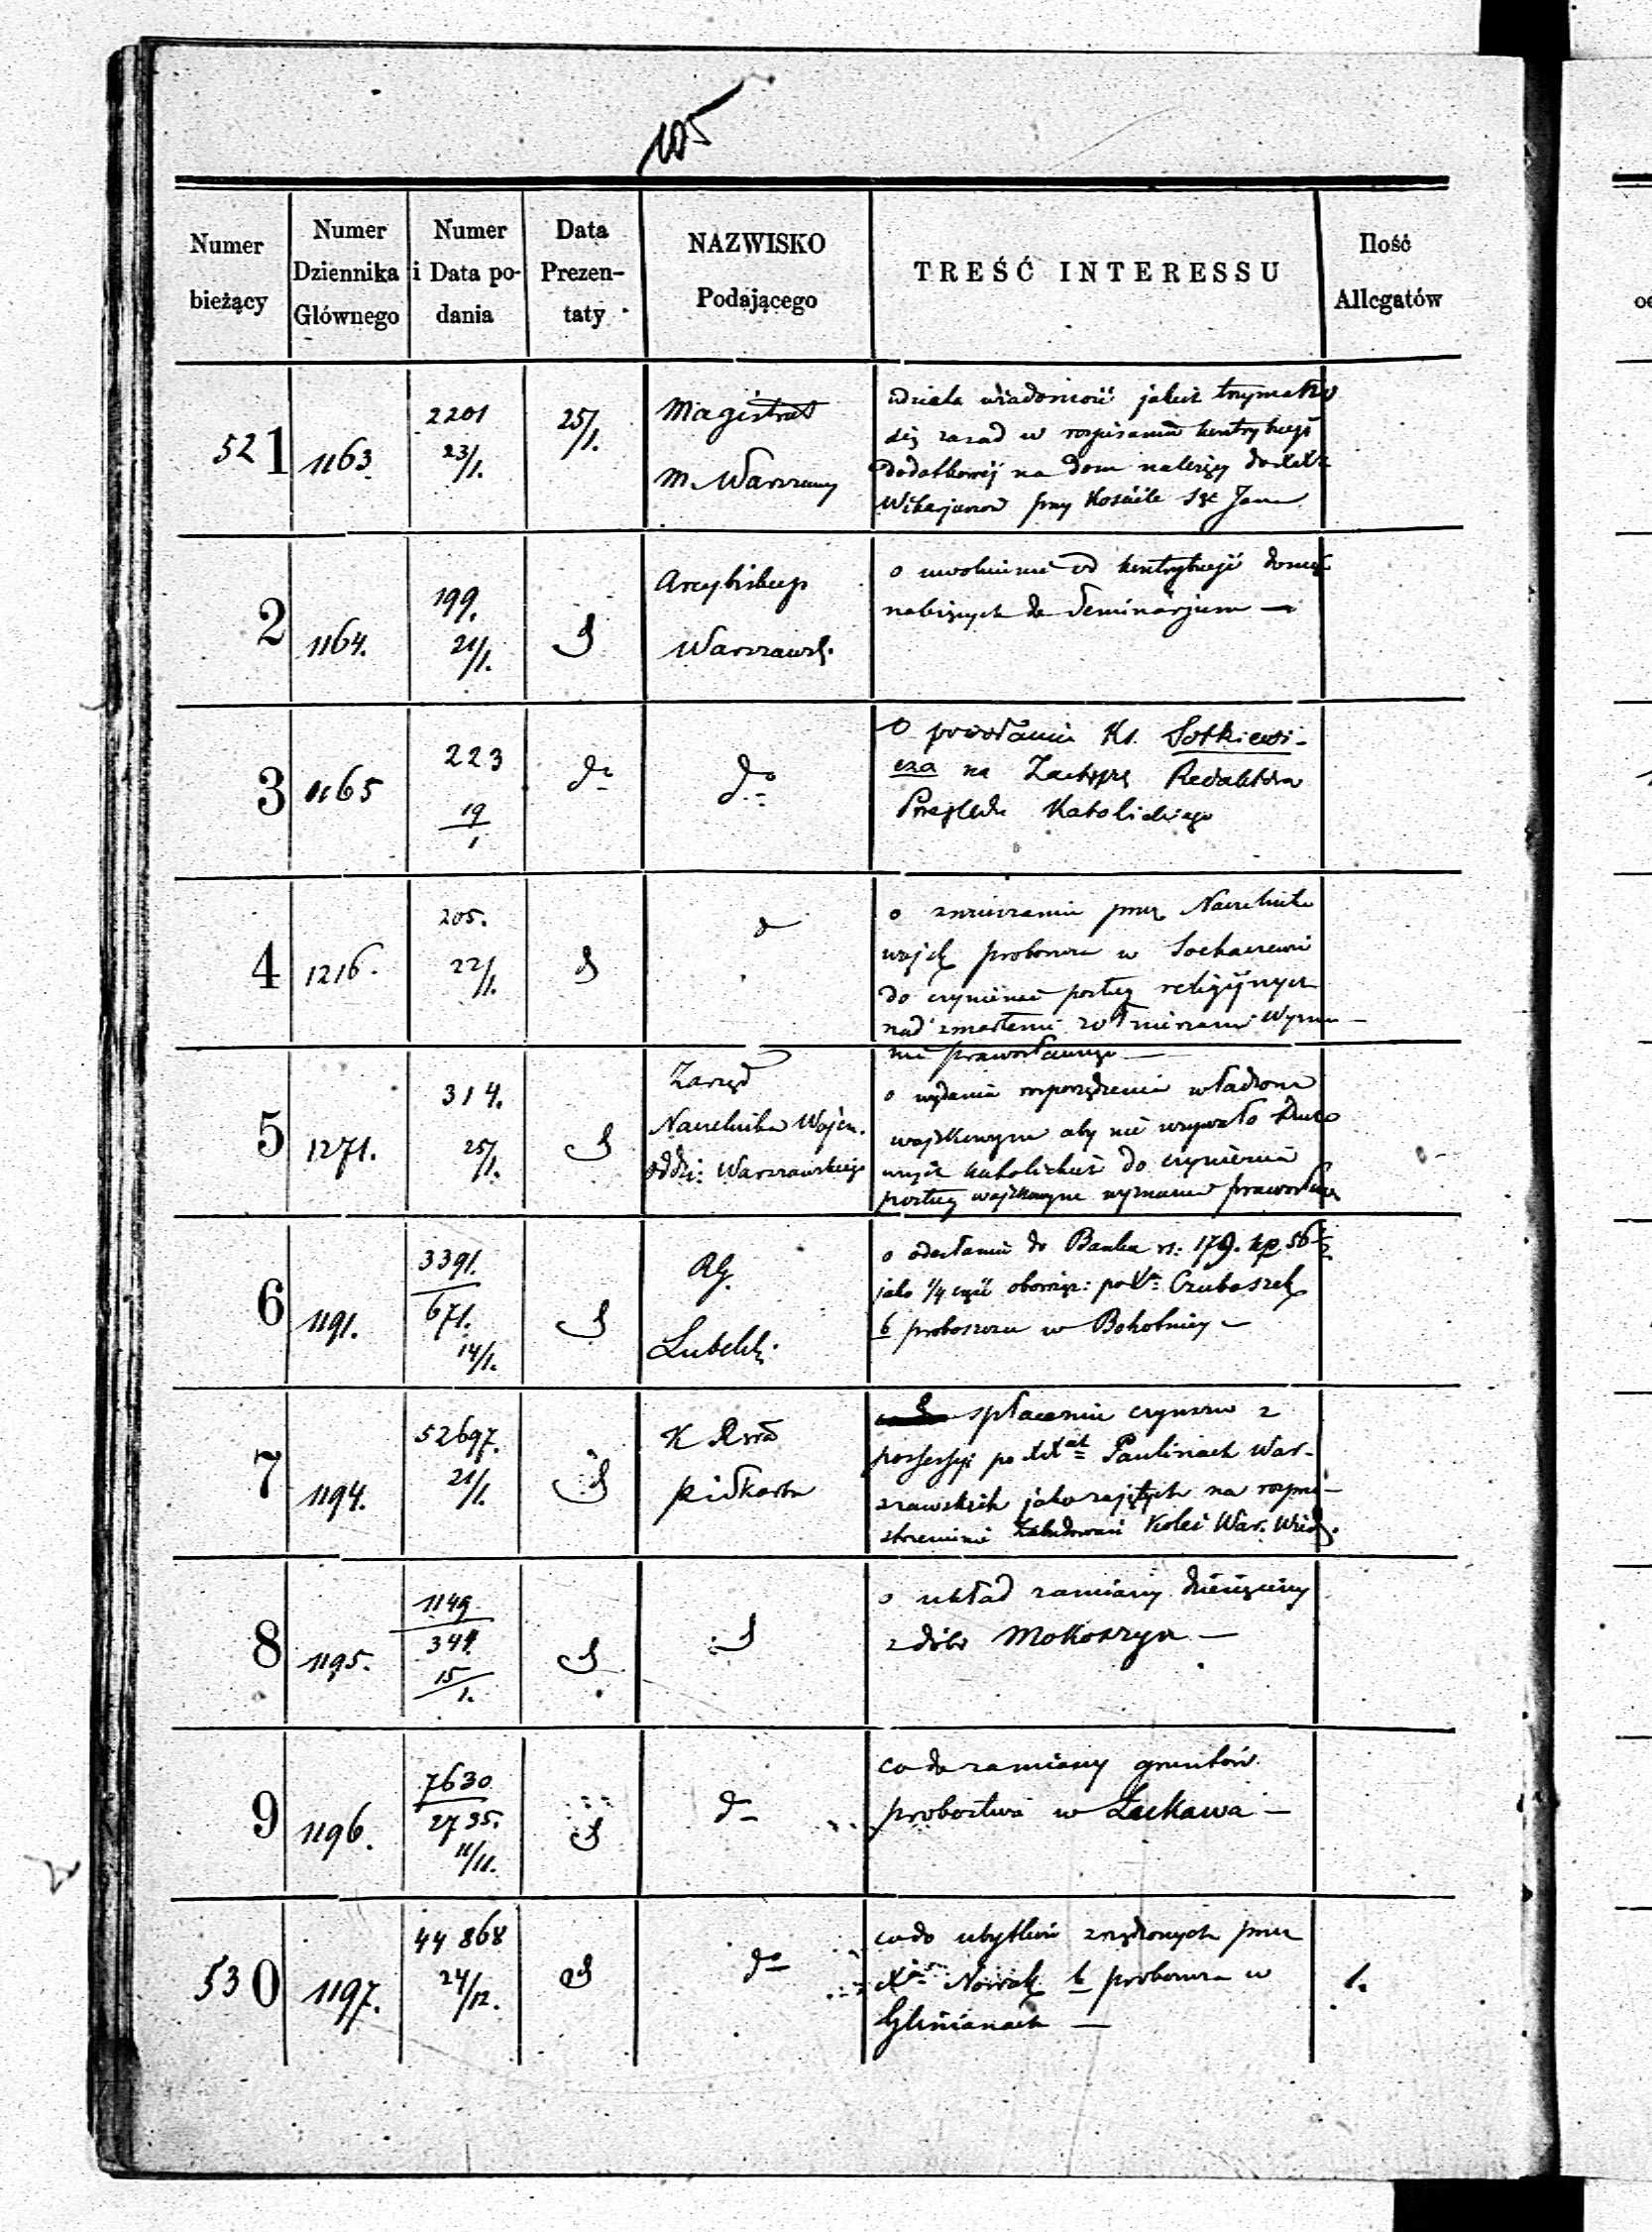 105
Numer bieżący
Numer Dziennika Głównego
Numer i Data podania
Data Prezentaty
NAZWISKO Podającego
TREŚĆ INTERESSU
Ilość Allegatów
521 1163 2201 23/1. 25/1. Magistrat m. Warszawy
udziela wiadomość jakich trzymał
się zasad w rozpisaniu kontrybucyi
dodatkowej na dom należący do XXży
Wikaryuszów przy Kościele Sgo Jana
2 1164. 199. 21/1. d Arcybiskup Warszawsk.
o uwolnienie od kontrybucyi domów
należących do Seminarjum —
3 1165 223 19/1 do do
O powołaniu Ks. Sotkiewi-
cza na Zastępcę Redaktora
Przeglądu Katolickiego
4 1216. 205. 22/1. d d
o zmuszaniu przez Naczelnika
wojsk proboszcza w Sochaczewie
do czynienia posług religijnych
nad zmarłemi żołnierzami Wyzna-
nia prawosławnego —
5 1271. 314. 25/1. d Zarząd Naczelnika Wojen. Oddzi: Warszawskiego
o wydanie rozporządzenia władzom
wojskowym aby nie wzywało Ducho
wnych katolickich do czynienia
posług wojskowym wyznania prawosław
6 1191. 3391. 671. 14/1. d RG. Lubelsk.
o odesłaniu do Banku rs: 179. kp 56
jako 1/4 część obowiąz: po Xs: Czubaszek
b proboszczu w Bochotnicy —
7 1194. 52697. 21/1. d K R
spłacenie czynszu z
possessyi po XXach Paulinach War-
szawskich jako zajętych na rozprze-
strzenienie Zabudowań Kolei War. Wied.
8 1195. 1149 349. 15/1. d d
o układ zamiany dziesięciny
z dóbr Mokoszyn —
9 1196. 7630 2735. 11/11. d d
co do zamiany gruntów
probostwa w Łukawa —
530 1197. 44868 24/12. d do
co do ubytków zrządzonych przez
Xa Nowak b proboszcza w
Glinianach —
1.